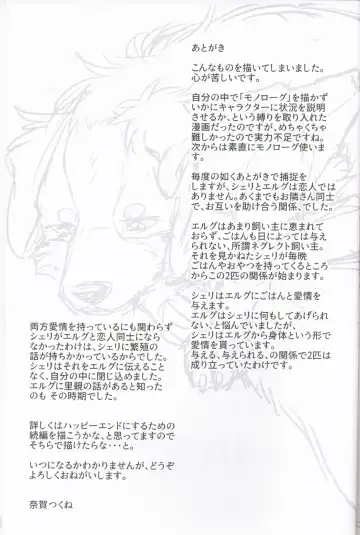 あとがき
こんなものを描いてしまいました。
心が苦しいです。
自分の中で「モノローグ」を描かず
いかにキャラクターに状況を説明
させるか、という縛りを取り入れた
漫画だったのですが、めちゃくちゃ
難しかったので実力不足ですね。
次からは素直にモノローグ使いま
す。
毎度の如くあとがきで捕捉を
しますが、シェリとエルグは恋人では
ありません。あくまでもお隣さん同士
で、お互いを助け合う関係、でした。
エルグはあまり飼い主に恵まれて
おらず、ごはんも日によっては与え
られない、所謂ネグレクト飼い主。
それを見かねたシェリが毎晩
ごはんやおやつを持ってくるところ
からこの2匹の関係が始まります。
シェリはエルグにごはんと愛情を
与えます。
エルグはシェリに何もしてあげられ
ない、と悩んでいましたが、
シェリはエルグから身体という形で
愛情を貰っています。
与える、与えられる、の関係で2匹は
成り立っていたわけです。
両方愛情を持っているにも関わらず
シェリがエルグと恋人同士になら
なかったわけは、シェリに繁殖の
話が持ちかかっているからでした。
シェリはそれをエルグに伝えること
なく、自分の中で閉じ込めました。
エルグに里親の話があると知った
のも その時期でした。
詳しくはハッピーエンドにするための
続編を描こうかな、と思ってますので
そちらで描けたらな・・・と。
いつになるかわかりませんが、どうぞ
よろしくおねがいします。
奈賀つくね